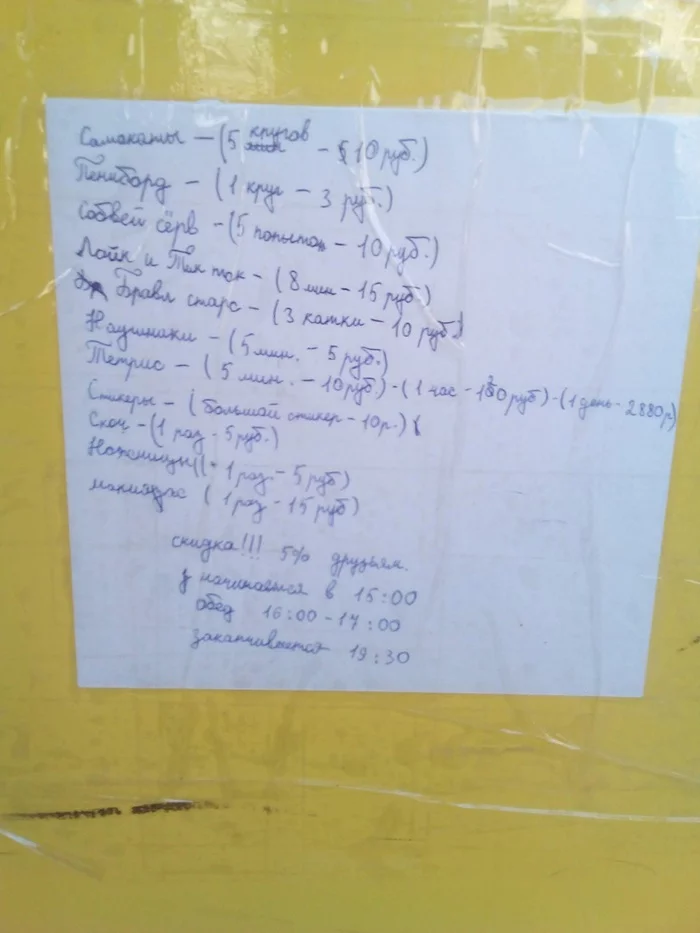 Самокаты – (5 кругов – 10 руб.)
Пениборд – (1 круг – 3 руб.)
Собвей сёрв – (5 попыток – 10 руб.)
Лайк и Тик ток – (8 мин – 15 руб.)
Бравл старс – (3 катки – 10 руб.)
Наушники – (5 мин. – 5 руб.)
Тетрис – (5 мин. – 10 руб.) – (1 час – руб) – (1 день – 2880 р)
Стикеры – (большой стикер – 10 р.)
Скоч – (1 раз – 5 руб.)
Ножницы (1 раз – 5 руб)
(1 раз – 15 руб)
скидка!!! 5% друзьям.
начинается в 15:00
обед 16:00 – 17:00
заканчивается 19:30